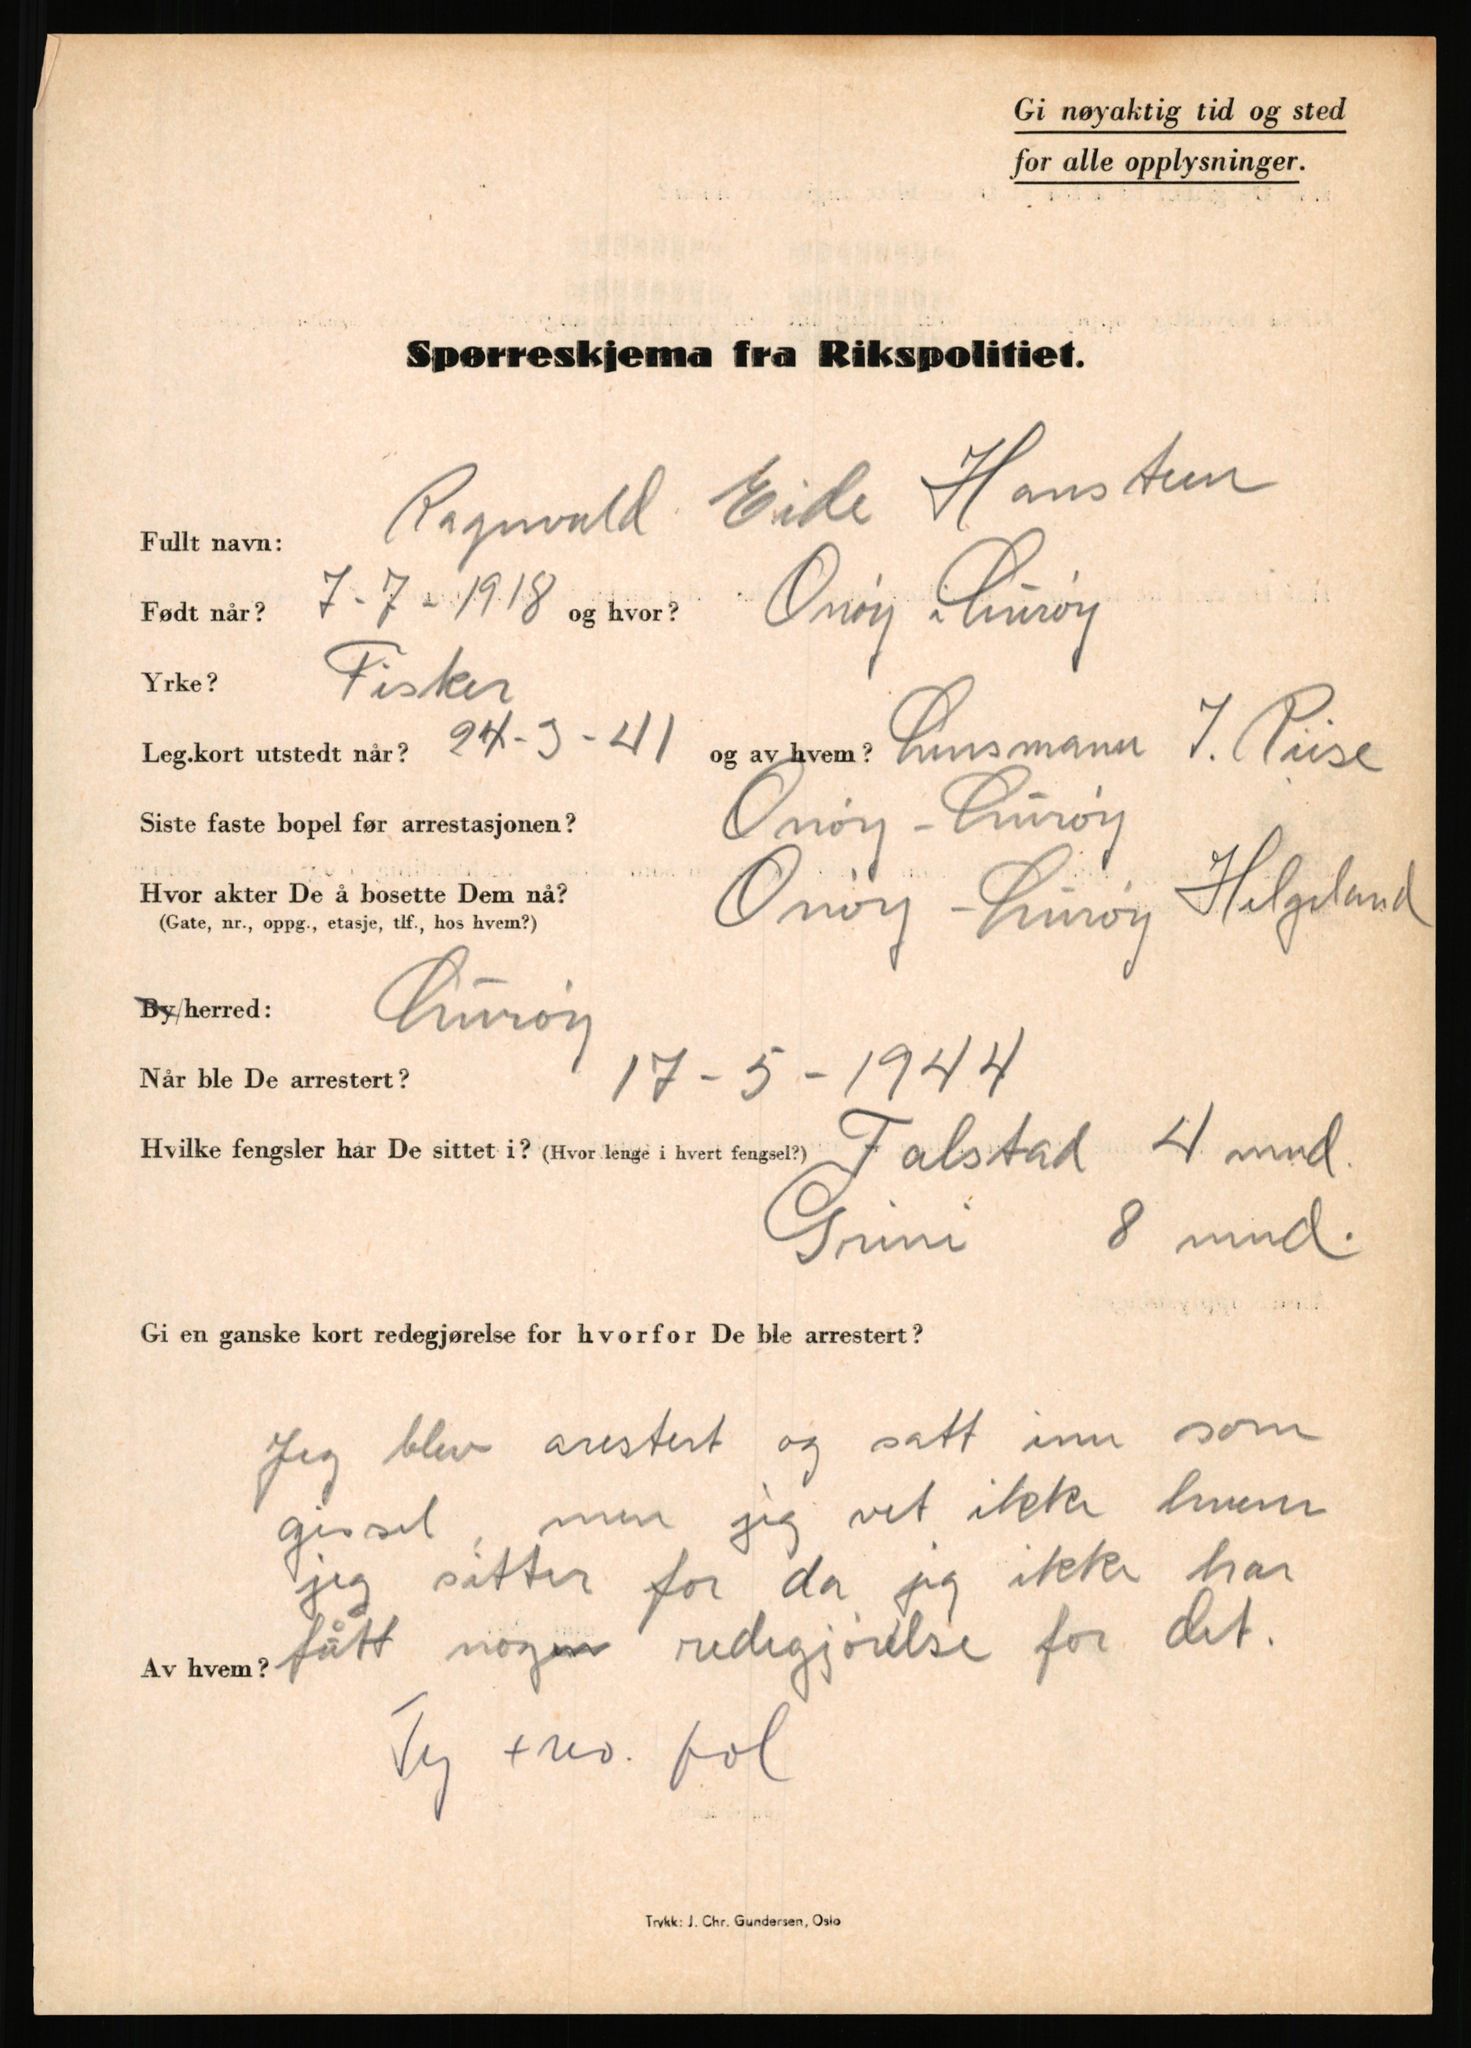 Gi nøyaktig tid og sted
for alle opplysninger.
Spørreskjema fra Rikspolitiet.
Fullt navn: Ragnvald Eide Hansteen
Født når? 7-7-1918 og hvor? Onøy i Lurøy
Yrke? Fisker
Leg.kort utstedt når? 24-3-41 og av hvem? Lensmann I. Riise
Siste faste bopel før arrestasjonen? Onøy - Lurøy
Hvor akter De å bosette Dem nå? Onøy - Lurøy Helgeland
(Gate, nr., oppg., etasje, tlf., hos hvem?)
By/herred: Lurøy
Når ble De arrestert? 17-5-1944
Hvilke fengsler har De sittet i? (Hvor lenge i hvert fengsel?) Falstad 4 mnd.
Grini 8 mnd.
Gi en ganske kort redegjørelse for hvorfor De ble arrestert?
Jeg blev arestert og satt inn som
gissel, men jeg vet ikke hvem
jeg sitter for da jeg ikke har
fått nogen redegjørelse for det.
Av hvem?
Ty + no. pol
Trykk: J. Chr. Gundersen, Oslo